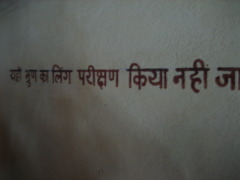 यहाँ भ्रुण का लिंग परीक्षण किया नहीं जा